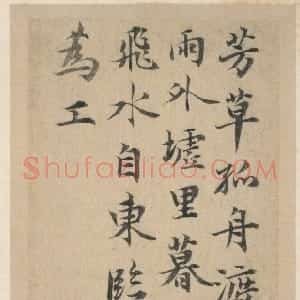 芳草孤舟渡
雨外墟里暮
飛水自東臨
為工
Shufazidiao.com